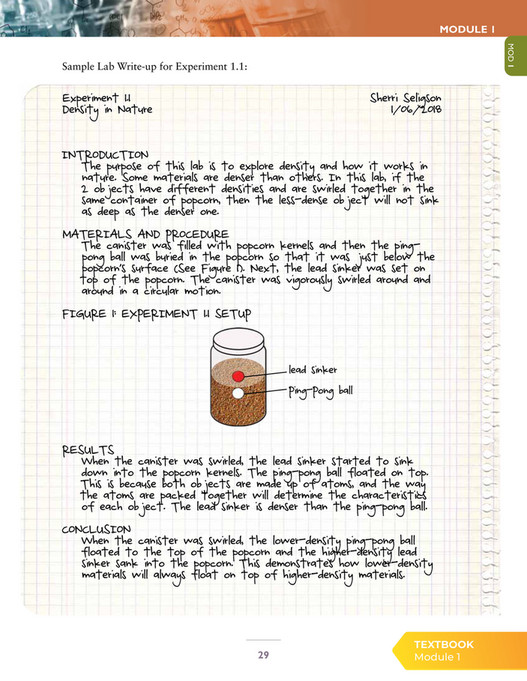 MODULE 1
MOD 1
Sample Lab Write-up for Experiment 1.1:
Experiment 1.1
Sherri Seligson
Density in Nature
1/06/2018
INTRODUCTION
The purpose of this lab is to explore density and how it works in
nature. Some materials are denser than others. In this lab, if the
2 objects have different densities and are swirled together in the
same container of popcorn, then the less-dense object will not sink
as deep as the denser one.
MATERIALS AND PROCEDURE
The canister was filled with popcorn kernels and then the ping-
pong ball was buried in the popcorn so that it was just below the
popcorn's surface (See Figure 1). Next, the lead sinker was set on
top of the popcorn. The canister was vigorously swirled around and
around in a circular motion.
FIGURE 1: EXPERIMENT 1.1 SETUP
lead sinker
ping-pong ball
RESULTS
When the canister was swirled, the lead sinker started to sink
down into the popcorn kernels. The ping-pong ball floated on top.
This is because both objects are made up of atoms, and the way
the atoms are packed together will determine the characteristics
of each object. The lead sinker is denser than the ping-pong ball.
CONCLUSION
When the canister was swirled, the lower-density ping-pong ball
floated to the top of the popcorn and the higher-density lead
sinker sank into the popcorn. This demonstrates how lower-density
materials will always float on top of higher-density materials.
29
TEXTBOOK
Module 1